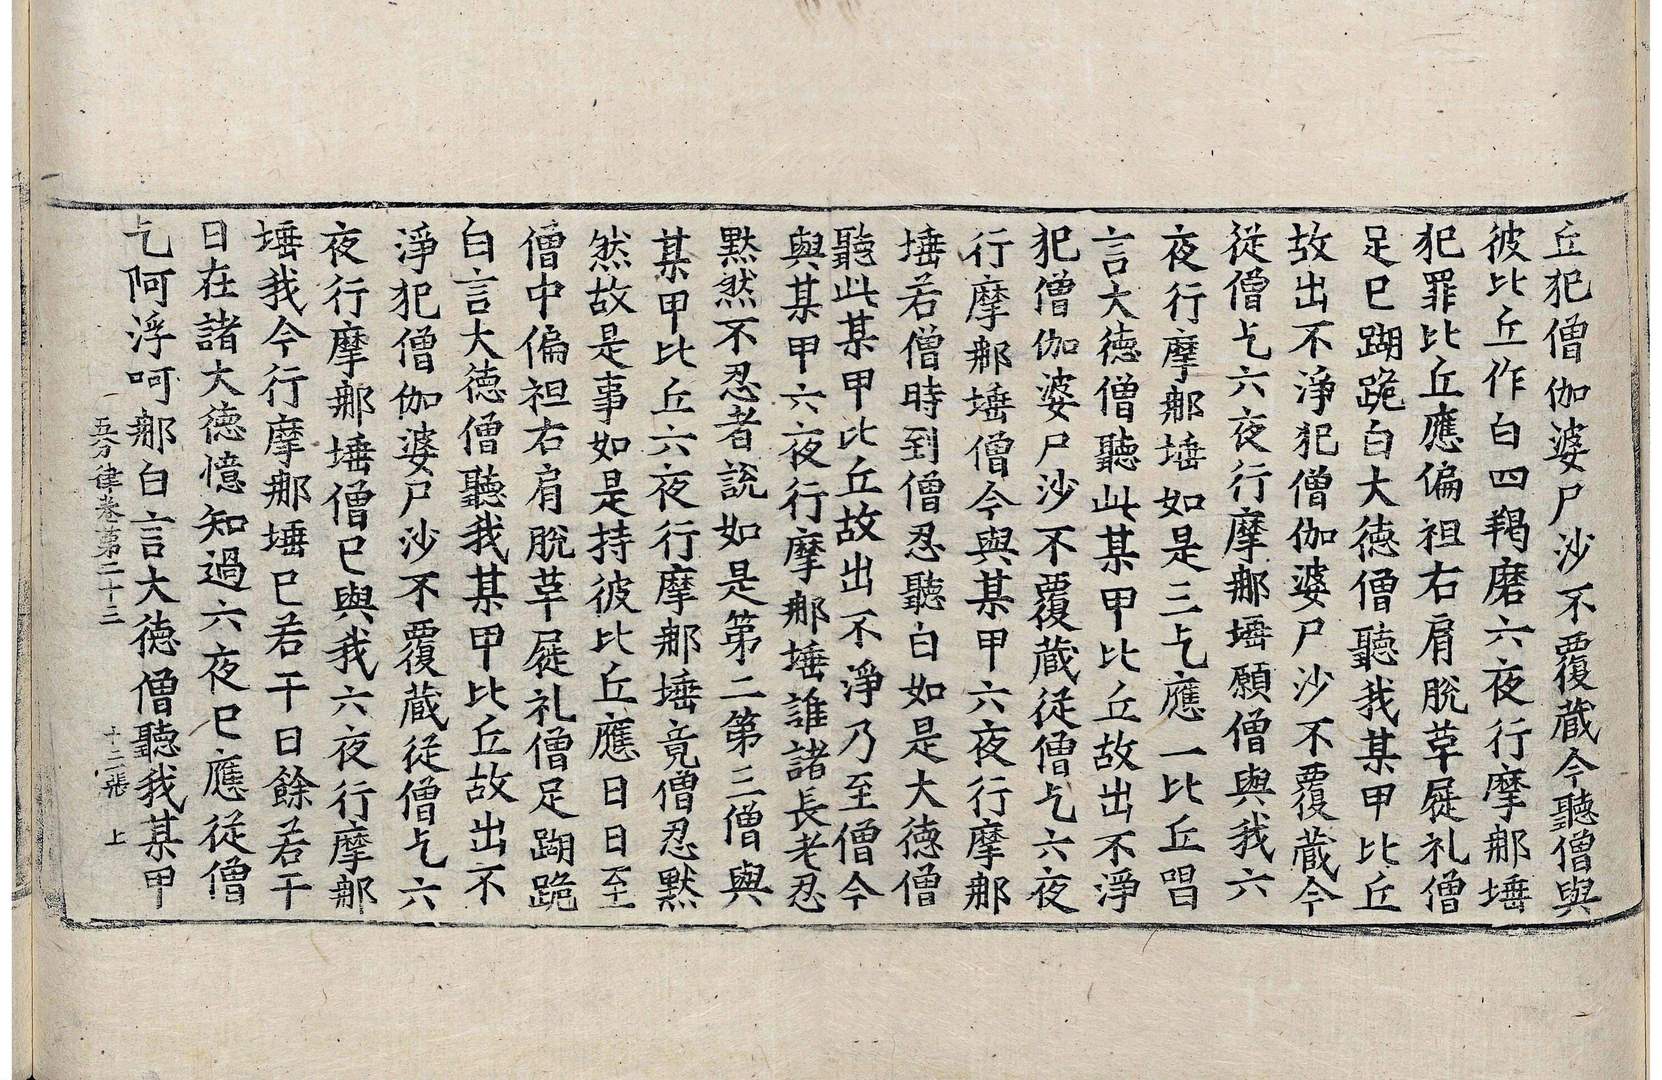 丘犯僧伽婆尸沙不覆藏今聽僧與
彼比丘作白四羯磨六夜行摩那埵
犯罪比丘應偏袒右肩脫草屣礼僧
足已䠒跪白大德僧聽我某甲比丘
故出不淨犯僧伽婆尸沙不覆藏今
從僧乞六夜行摩那埵願僧與我六
夜行摩那埵如是三乞應一比丘唱
言大德僧聽此某甲比丘故出不淨
犯僧伽婆尸沙不覆藏從僧乞六夜
行摩那埵僧今與某甲六夜行摩那
埵若僧時到僧忍聽白如是大德僧
聽此某甲比丘故出不淨乃至僧今
與某甲六夜行摩那埵誰諸長老忍
默然不忍者說如是第二第三僧與
某甲比丘六夜行摩那埵竟僧忍默
然故是事如是持彼比丘應日日至
僧中偏袒右肩脫草屣礼僧足䠒跪
白言大德僧聽我某甲比丘故出不
淨犯僧伽婆尸沙不覆藏從僧乞六
夜行摩那埵僧已與我六夜行摩那
埵我今行摩那埵已若干日餘若干
日在諸大德憶知過六夜已應從僧
乞阿浮呵那白言大德僧聽我某甲
五分律卷第二十三 十二張 上